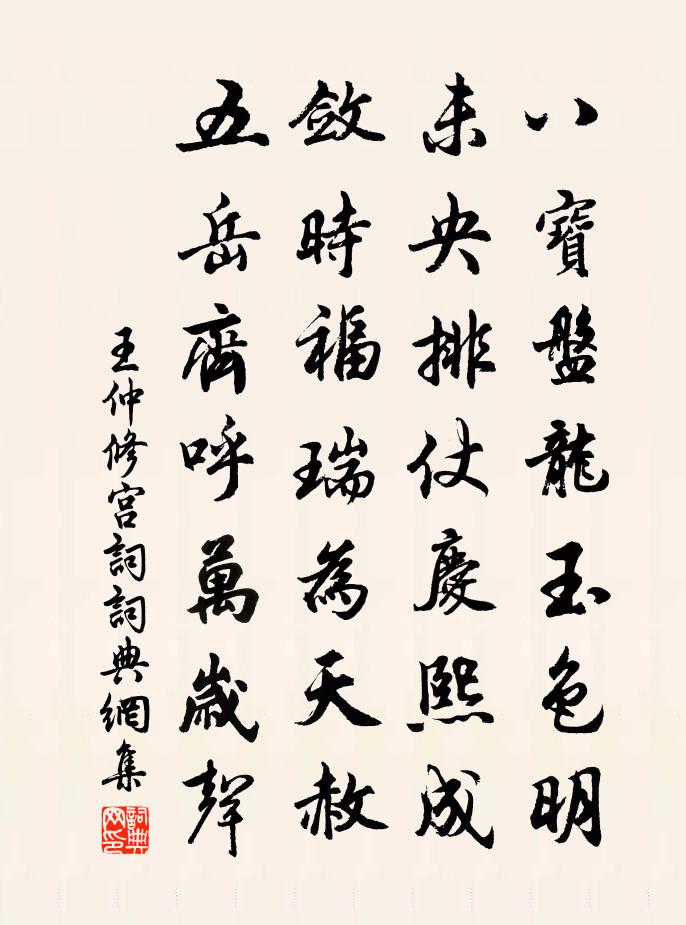 八寶盤龍玉色明
未央排仗慶熙成
斂時福瑞為天赦
五岳齊呼萬歲聲
王仲修宮詞詞典網集
詞典网印